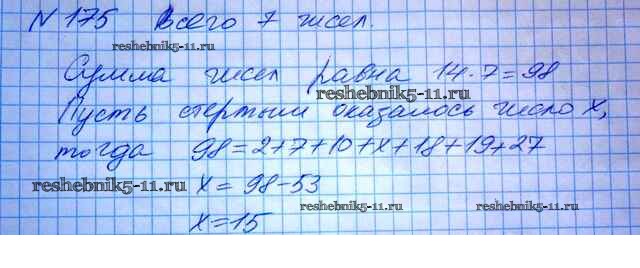 № 175 Всего 7 чисел.
reshebnik5-11.ru
Сумма чисел равна 14·7=98
reshebnik5-11.ru
Пусть стертым оказалось число x,
тогда 98=2+7+10+x+18+19+27
reshebnik5-11.ru
x = 98-53
reshebnik5-11.ru
reshebnik5-11.ru
x=15